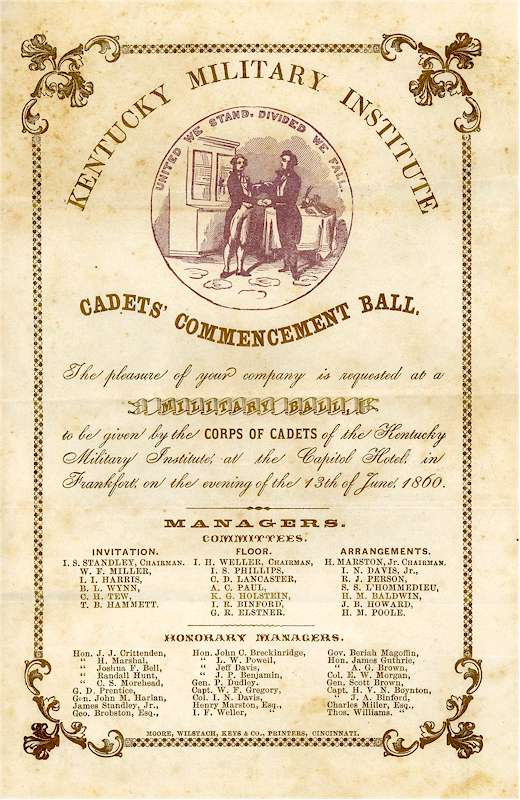 KENTUCKY MILITARY INSTITUTE
UNITED WE STAND, DIVIDED WE FALL.
CADETS' COMMENCEMENT BALL.
The pleasure of your company is requested at a
MILITARY BALL,
to be given by the CORPS OF CADETS of the Kentucky
Military Institute, at the Capitol Hotel, in
Frankfort, on the evening of the 13th of June, 1860.
MANAGERS.
COMMITTEES.
INVITATION.
I. S. STANDLEY, CHAIRMAN.
W. F. MILLER,
I. I. HARRIS,
B. L. WYNN,
C. B. TEW,
T. B. HAMMETT.
FLOOR.
I. H. WELLER, CHAIRMAN.
I. S. PHILLIPS,
C. D. LANCASTER,
A. C. PAUL,
K. G. HOLSTEIN,
I. R. BINFORD,
G. R. ELSTNER.
ARRANGEMENTS.
H. MARSTON, JR. CHAIRMAN.
I. N. DAVIS, JR.,
R. J. PERSON,
S. S. L'HOMMEDIEU,
H. M. BALDWIN,
J. B. HOWARD,
H. M. POOLE.
HONORARY MANAGERS.
Hon. J. J. Crittenden,
" H. Marshal,
" Joshua F. Bell,
" Randall Hunt,
" C. S. Morehead,
G. D. Prentice,
Gen. John M. Harlan,
James Standley, Jr.,
Geo. Brobston, Esq.,
Hon. John C. Breckinridge,
" L. W. Powell,
" Jeff Davis,
" J. P. Benjamin,
Gen. P. Dudley,
Capt. W. F. Gregory,
Col. I. N. Davis,
Henry Marston, Esq.,
I. F. Weller, "
Gov. Beriah Magoffin,
Hon. James Guthrie,
" A. G. Brown,
Col. E. W. Morgan,
Gen. Scott Brown,
Capt. H. V. N. Boynton,
" J. A. Binford,
Charles Miller, Esq.,
Thos. Williams. "
MOORE, WILSTACH, KEYS & CO., PRINTERS, CINCINNATI.